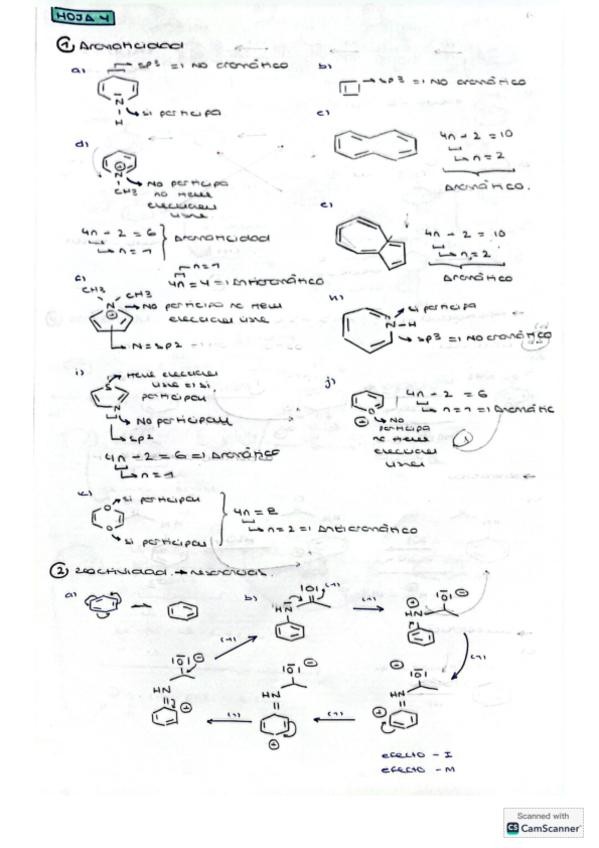 HOJA 4
① Aromaticidad
a) → sp3 => NO aromático
N
H
→ si participa
b) → sp3 => NO aromático
c) 4n + 2 = 10
→ n = 2
Aromático.
d) N
CH3
→ NO participa
no tiene
electrones
libres.
4n + 2 = 6
→ n = 1
Aromaticidad
e) 4n + 2 = 10
→ n = 2
Aromático
→ n = 1
4n = 4 => Antiaromático
CH3 CH3
N → NO participa no tiene
electrones libres
→ N = sp2
h) → si participa
N-H
→ sp3 => NO aromático
i) → tiene electrones
libres si
participan
S
N
→ NO participan
→ sp2
4n + 2 = 6 => Aromático
→ n = 1
j) 4n + 2 = 6
→ n = 1 => Aromátic
O
→ NO
participa
no tiene
electrones
libres
k) O → si participan
O → si participan
4n = 8
→ n = 2 => Antiaromático
② Reactividad →
a)
b) HN
IOI
HN
IOI
HN
IOI
HN
IOI
HN
IOI
EFECTO - I
EFECTO - M
Scanned with
CS CamScanner